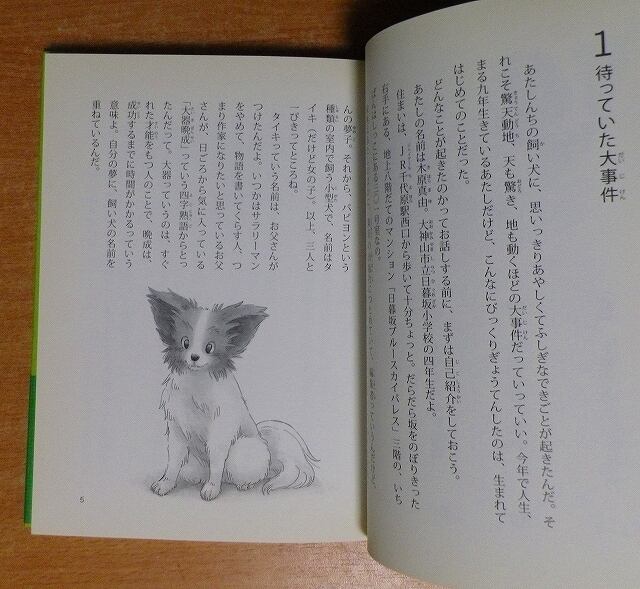 1 待っていた大事件
あたしんちの飼い犬に、思いっきりあやしくてふしぎなできごとが起きたんだ。そ
れこそ驚天動地、天も驚き、地も動くほどの大事件だっていっていい。今年で人生、
まる九年生きているあたしだけど、こんなにびっくりぎょうてんしたのは、生まれて
はじめてのことだった。
どんなことが起きたのかってお話しする前に、まずは自己紹介をしておこう。
あたしの名前は木原真由。大神山市立日暮坂小学校の四年生だよ。
住まいは、JR千代原駅西口から歩いて十分ちょっと。だらだら坂をのぼりきった
右手にある、地上八階だてのマンション「日暮坂ブルースカイパレス」三階の、いち
んの夢子。それから、パピヨンという
種類の室内で飼う小型犬で、名前はタ
イキ(だけど女の子)。以上、三人と
一ぴきってところね。
タイキっていう名前は、お父さんが
つけたんだよ。いつかはサラリーマン
をやめて、物語を書いてくらす人、つ
まり作家になりたいと思っているお父
さんが、日ごろから気に入っている
「大器晩成」っていう四字熟語からとっ
たんだって。大器っていうのは、すぐ
れた才能をもつ人のことで、晩成は、
成功するまでに時間がかかるっていう
意味よ。自分の夢に、飼い犬の名前を
重ねているんだ。
5